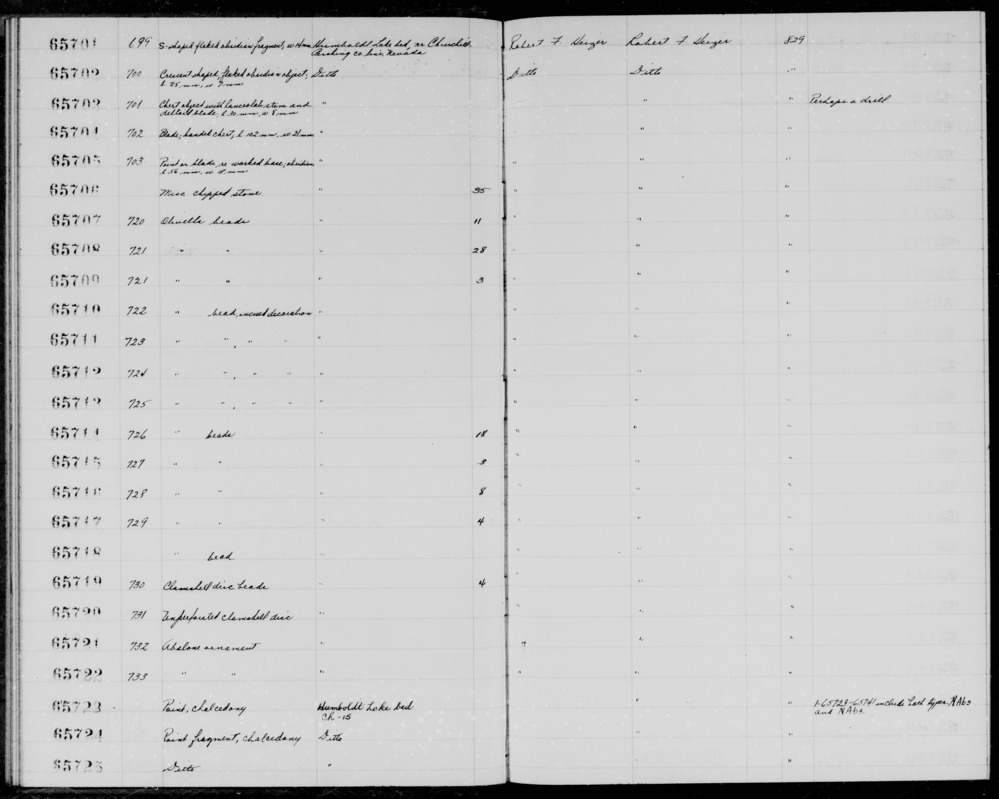 65701 699 S-shaped flaked obsidian fragment, w 14 mm Humboldt Lake bed, nr Churchill- Robert F. Heizer Robert F Heizer 829
Pershing co line, Nevada
65702 700 Crescent shaped, flaked obsidian object, Ditto Ditto Ditto "
l 25 mm, w 7 mm
65703 701 Chert object with lanceolate stem and " " " Perhaps a drill
deltoid blade, l 30 mm, w 8 mm
65704 702 Blade, banded chert, l 102 mm, w 21 mm " " "
65705 703 Point or blade, re worked base, obsidian " " " "
l 56 mm, w mm
65706 Misc chipped stone " 35 " " "
65707 720 Olivella beads " 11 " " "
65708 721 " " " 28 " " "
65709 721 " " " 3 " " "
65710 722 " bead, incised decoration " " " "
65711 723 " " , " " " " " "
65712 724 " " , " " " " " "
65713 725 " " , " " " " " "
65714 726 " beads " 18 " " "
65715 727 " " " 3 " " "
65716 728 " " " 8 " " "
65717 729 " " " 4 " " "
65718 " bead " " " "
65719 730 Clamshell disc beads " 4 " " "
65720 731 Unperforated clamshell disc " " " "
65721 732 Abalone ornament " " " "
65722 733 " " " " "
65723 Point, chalcedony Humboldt Lake bed " " 1-65723-6574 include Loud types NAb3
Ch-15 and NAb2
65724 Point fragment, chalcedony Ditto " "
65725 Ditto " " "